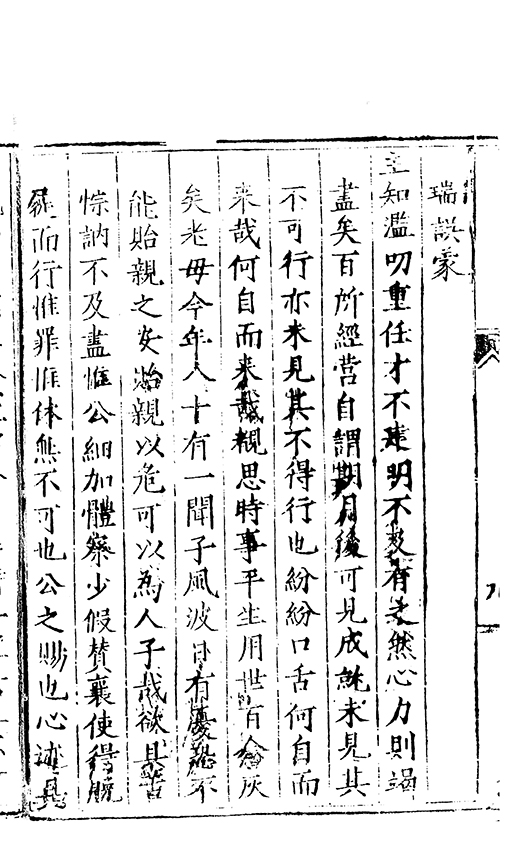 瑞誤蒙
主知濫叨重任才不逮明不及有之然心力則竭
盡矣百所經營自謂期月後可見成就未見其
不可行亦未見其不得行也紛紛口舌何自而
来哉何自而来哉視思時事平生用世百念灰
矣老母今年八十有一聞子風波日有憂恐不
能貽親之安貽親以危可以為人子哉欲具啓
悰訥不及盡惟公細加體察少假賛襄使得脫
然而行惟罪惟休無不可也公之賜也心迹具